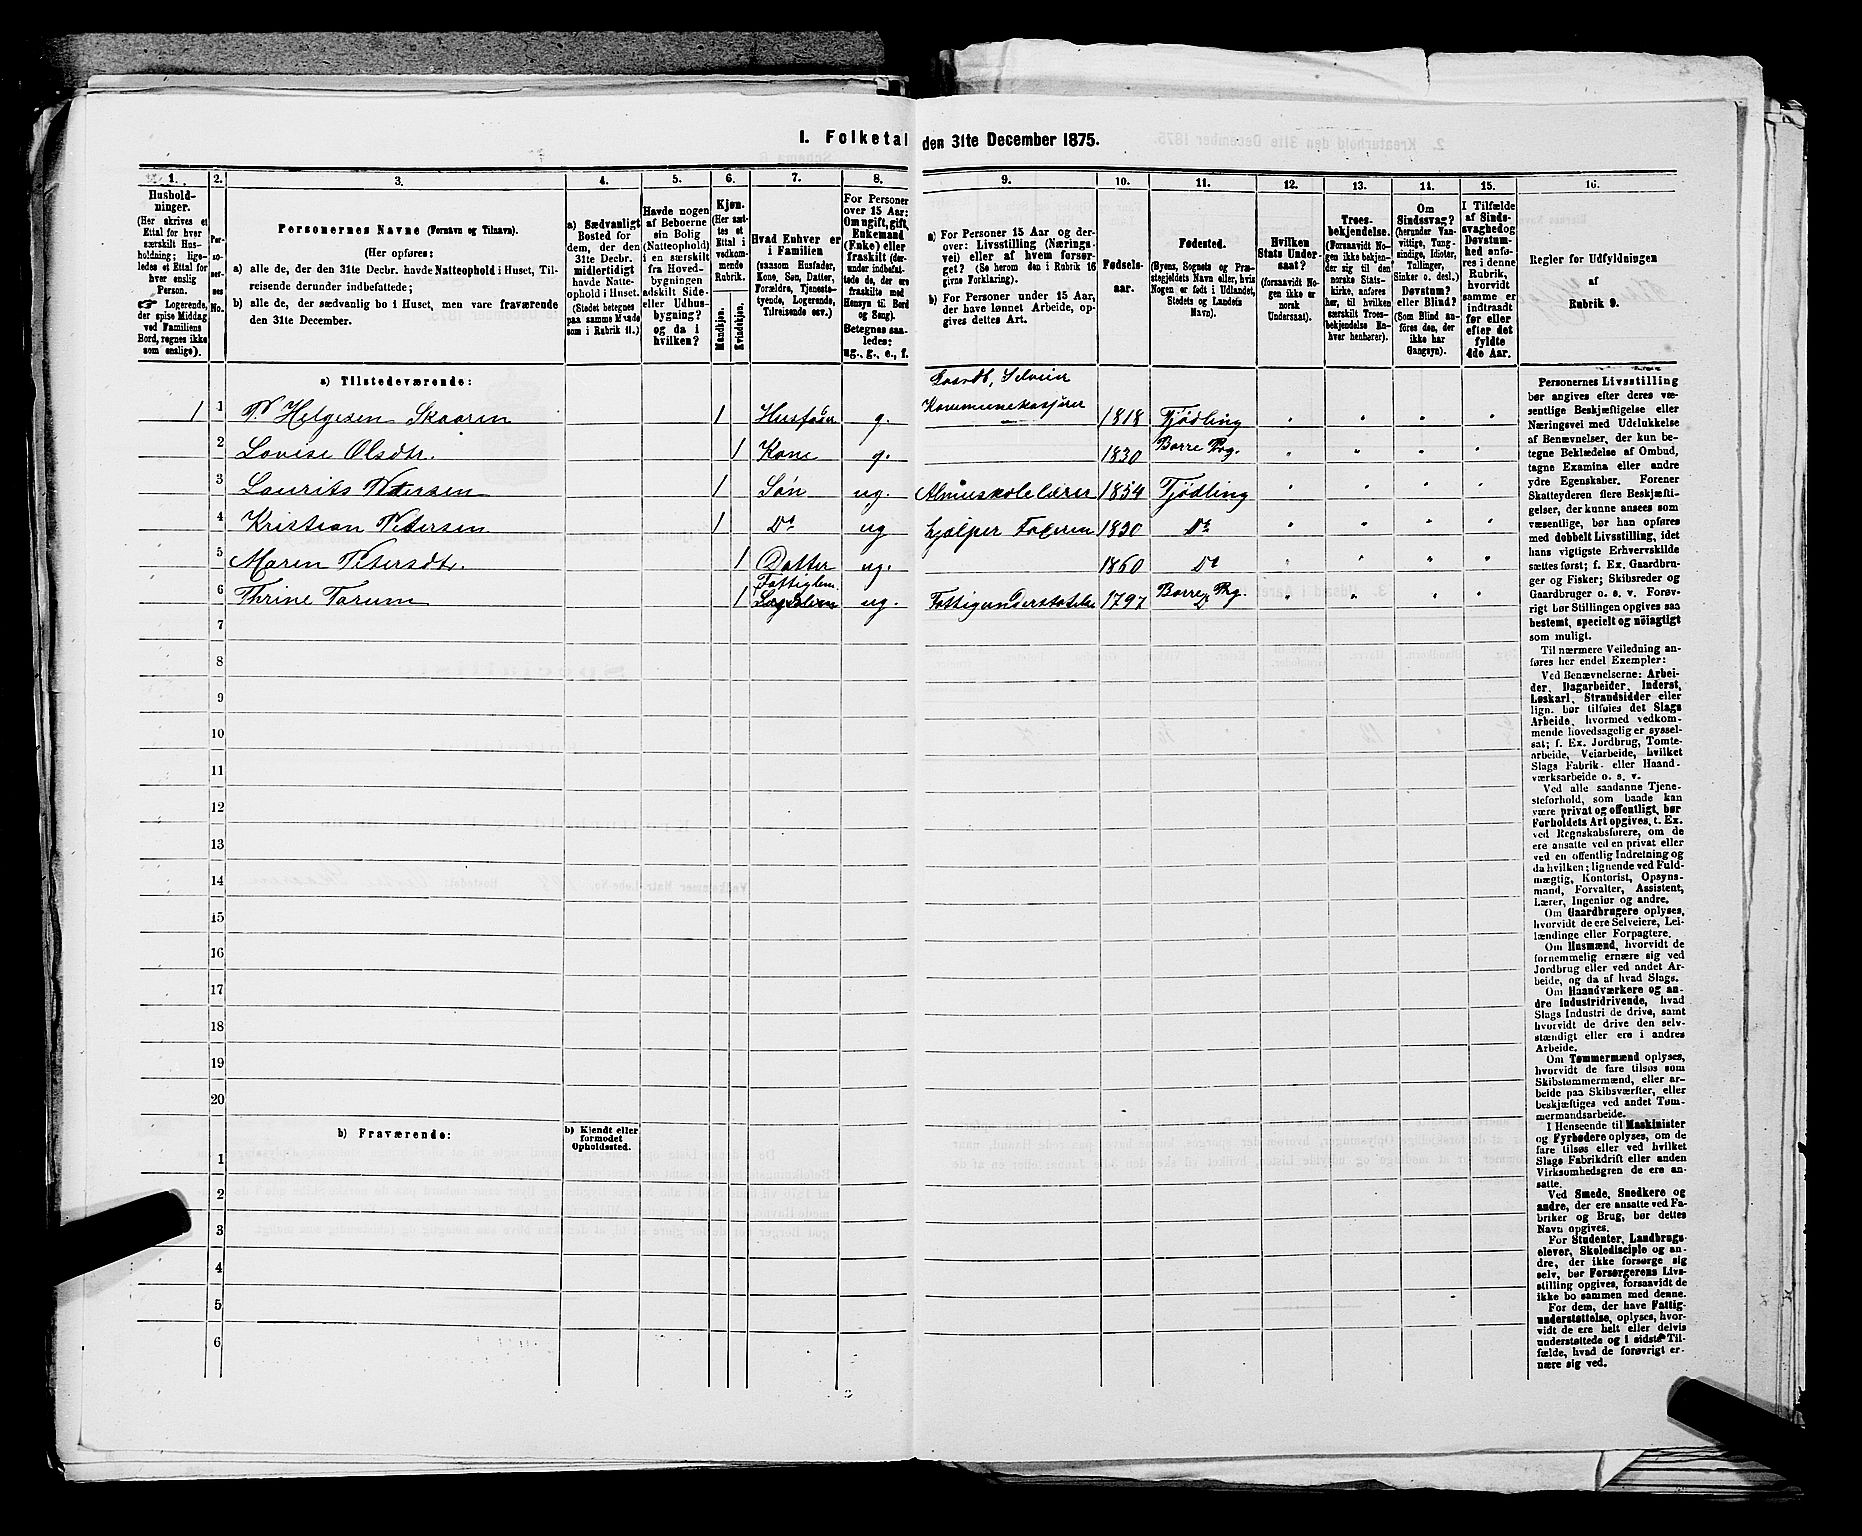 I. Folketal den 31te December 1875.
1. 2. 3. 4. 5. 6. 7. 8. 9. 10. 11. 12. 13. 14. 15. 16.
Hushold-
ninger.
(Her skrives et
Ettal for hver
særskilt Hus-
holdning; lige-
ledes et Ettal for
hver enslig
Person.
☞ Logerende,
der spise Middag
ved Familiens
Bord, regnes ikke
som enslige).
Per-
so-
ner-
nes
No.
Personernes Navne (Fornavn og Tilnavn).
(Her opføres:
a) alle de, der den 31te Decbr. havde Natteophold i Huset, Til-
reisende derunder indbefattede;
b) alle de, der sædvanlig bo i Huset, men vare fraværende
den 31te December.
a) Sædvanligt
Bosted for
dem, der den
31te Decbr.
midlertidigt
havde Natte-
ophold i Huset.
(Stedet betegnes
paa samme Maade
som i Rubrik 11.)
Havde nogen
af Beboerne
sin Bolig
(Natteophold)
i en særskilt
fra Hoved-
bygningen
adskilt Side-
eller Udhus-
bygning?
og da i
hvilken?
Kjøn.
(Her sæt-
tes et
Ettal i
vedkom-
mende
Rubrik.
Mandkjøn.
Kvindekjøn.
Hvad Enhver er
i Familien
(saasom Husfader,
Kone, Søn, Datter,
Forældre, Tjeneste-
tyende, Logerende,
Tilreisende osv.)
For Personer
over 15 Aar:
Om ugift, gift,
Enkemand
(Enke) eller
fraskilt (der-
under indbefat-
tede de, der ere
fraskilte med
Hensyn til Bord
og Seng).
Betegnes saa-
ledes:
ug., g., e., f.
a) For Personer 15 Aar og der-
over: Livsstilling (Nærings-
vei) eller af hvem forsør-
get? (Se herom den i Rubrik 16
givne Forklaring).
b) For Personer under 15 Aar,
der have lønnet Arbeide, op-
gives dettes Art.
Fødsels-
aar.
Fødested.
(Byens, Sognets og Præ-
stegjeldets Navn eller, hvis
Nogen er født i Udlandet,
Stedets og Landets
Navn).
Hvilken
Stats Under-
saat?
(forsaavidt No-
gen ikke er
norsk
Undersaat).
Troes-
bekjendelse.
(Forsaavidt No-
gen ikke bekjen-
der sig til den
norske Stats-
kirke, anføres
her, til hvilken
særskilt Troes-
bekjendelse En-
hver henhører).
Om
Sindssvag?
(herunder Van-
vittige, Tung-
sindige, Idioter,
Tullinger,
Sinker o. desl.)
Døvstum?
eller Blind?
(Som Blind an-
føres den, der
ikke har
Gangsyn).
I Tilfælde
af Sinds-
svaghed og
Døvstum-
hed anfø-
res i denne
Rubrik,
hvorvidt
samme er
indtraadt
før eller
efter det
fyldte
4de Aar.
Regler for Udfyldningen
af
Rubrik 9.
a) Tilstedeværende:
Gaardb, Selveier
1 1 P Helgesen Skaaren 1 Husfader g. Kommunekasjerer 1818 Tjødling " " " "
2 Lovise Olsdtr. 1 Kone g. 1830 Borre Prg. " " " "
3 Laurits Petersen 1 Søn ug. Almueskolelærer 1854 Tjødling " " " "
4 Kristian Petersen 1 Do ug hjælper Faderen Do " " " "
5 Maren Petersdtr. 1 Datter ug. 1860 Do " " " "
Fattiglem
6 Thrine Farum 1 ug. Fattigunderstøttelse 1797 Borre Prg. " " " "
7
8
9
10
11
12
13
14
15
16
17
18
19
20
b) Fraværende:
b) Kjendt eller
formodet
Opholdssted.
1
2
3
4
5
6
Personernes Livsstilling
bør angives efter deres væ-
sentlige Beskjæftigelse eller
Næringsvei med Udelukkelse
af Benævnelser, der kun be-
tegne Beklædelse af Ombud,
tagne Examina eller andre
ydre Egenskaber. Forener
Skatteyderen flere Beskjæfti-
gelser, der kunne ansees som
væsentlige, bør han opføres
med dobbelt Livsstilling, idet
hans vigtigste Erhvervskilde
sættes først; f. Ex. Gaardbru-
ger og Fisker; Skibsreder og
Gaardbruger o. s. v. Forøv-
rigt bør Stillingen opgives saa
bestemt, specielt og nøiagtigt
som muligt.
Til nærmere Veiledning an-
føres her endel Exempler:
Ved Benævnelserne: Arbei-
der, Dagarbeider, Inderst,
Løskarl, Strandsidder eller
lign. bør tilføies det Slags
Arbeide, hvormed vedkom-
mende hovedsagelig er syssel-
sat; f. Ex. Jordbrug, Tomte-
arbeide, Veiarbeide, hvilket
Slags Fabrik- eller Haand-
værksarbeide o. s. v.
Ved alle saadanne Tjene-
steforhold, som baade kan
være privat og offentligt, bør
Forholdets Art opgives, t. Ex.
ved Regnskabsførere, om de
ere ansatte ved en privat eller
ved en offentlig Indretning og
da hvilken; lignende ved Fuld-
mægtig, Kontorist, Opsyns-
mand, Forvalter, Assistent,
Lærer, Ingeniør og andre.
Om Gaardbrugere oplyses,
hvorvidt de ere Selveiere, Lei-
lændinge eller Forpagtere.
Om Husmænd, hvorvidt de
fornemmelig ernære sig ved
Jordbrug eller ved andet Ar-
beide, og da af hvad Slags.
Om Haandværkere og an-
dre Industridrivende, hvad
Slags Industri de drive, samt
hvorvidt de drive den selv-
stændigt eller ere i andres
Arbeide.
Om Tømmermænd oplyses,
hvorvidt de fare tilsøs som
Skibstømmermænd, eller ar-
beide paa Skibsværfter, eller
beskjæftiges ved andet Tøm-
mermandsarbeide.
I Henseende til Maskinister
og Fyrbødere oplyses, om de
fare tilsøs eller ved hvilket
Slags Fabrikdrift eller anden
Virksomhedsgren de ere an-
satte.
Ved Smede, Snedkere og
andre, der ere ansatte ved Fa-
briker og Brug, bør dettes
Navn opgives.
For Studenter, Landbrugs-
elever, Skoledisciple og an-
dre, der ikke forsørge sig
selv, bør Forsørgerens Livs-
stilling opgives, forsaavidt de
ikke bo sammen med denne.
For dem, der have Fattig-
understøttelse, oplyses, hvor-
vidt de ere helt eller delvis
understøttede og i sidste Til-
fælde, hvad de forøvrigt er-
nære sig ved.